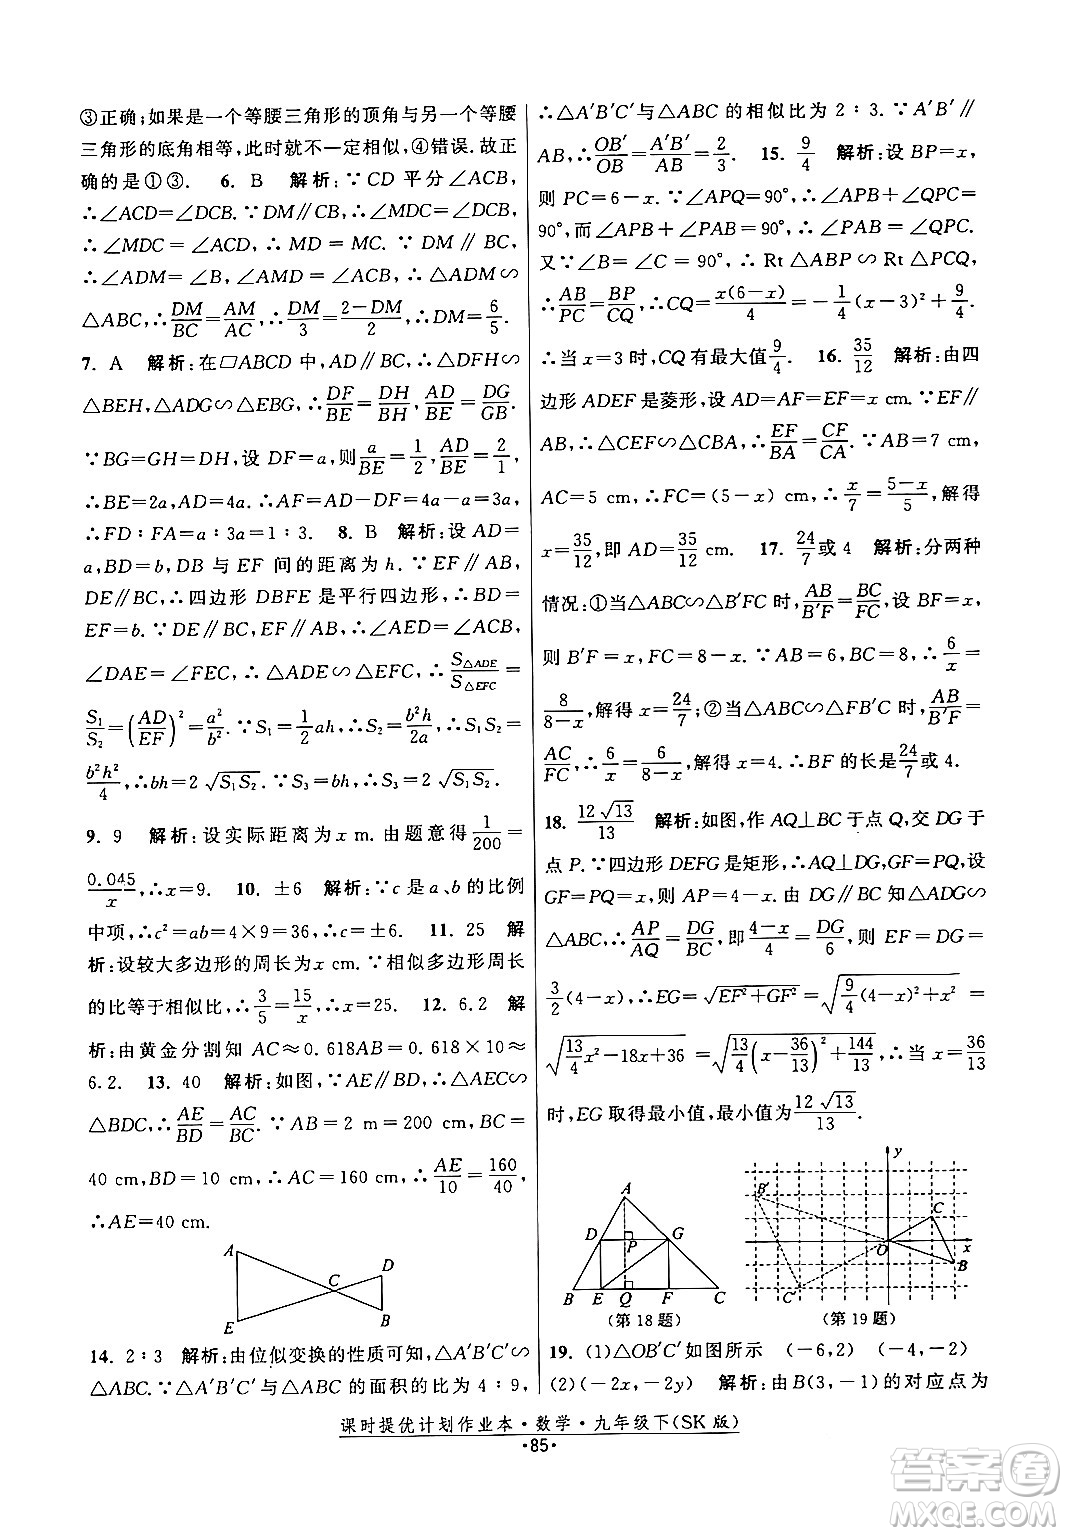 ③正确;如果是一个等腰三角形的顶角与另一个等腰
三角形的底角相等,此时就不一定相似,④错误.故正
确的是①③. 6. B 解析:∵CD 平分∠ACB,
∴∠ACD=∠DCB.∵DM∥CB,∴∠MDC=∠DCB.
∴∠MDC=∠ACD,∴MD=MC.∵DM∥BC,
∴∠ADM=∠B,∠AMD=∠ACB,∴△ADM∽
△ABC,∴DM/BC=AM/AC,∴DM/3=(2-DM)/2,∴DM=6/5.
7. A 解析:在▱ABCD 中,AD∥BC,∴△DFH∽
△BEH,△ADG∽△EBG,∴DF/BE=DH/BH,AD/BE=DG/GB.
∵BG=GH=DH,设 DF=a,则a/BE=1/2,AD/BE=2/1,
∴BE=2a,AD=4a.∴AF=AD-DF=4a-a=3a,
∴FD∶FA=a∶3a=1∶3. 8. B 解析:设 AD=
a,BF=b,DB 与 EF 间的距离为 h.∵EF∥AB,
DE∥BC,∴四边形 DBFE 是平行四边形,∴BD=
EF=b.∵DE∥BC,EF∥AB,∴∠AED=∠ACB,
∠DAE=∠FEC,∴△ADE∽△EFC,∴S△ADE/S△EFC=
S₁/S₂=(AD/EF)²=a²/b².∵S₁=1/2ah,∴S₂=b²h/2a,∴S₁S₂=
b²h²/4,∴bh=2√S₁S₂.∵S=bh,∴S=2√S₁S₂.
9. 9 解析:设实际距离为 x m.由题意得1/200=
0.045/x,∴x=9. 10. ±6 解析:∵c 是 a、b 的比例
中项,∴c²=ab=4×9=36,∴c=±6. 11. 25 解
析:设较大多边形的周长为 x cm.∵相似多边形周长
的比等于相似比,∴3/5=15/x,∴x=25. 12. 6.2 解
析:由黄金分割知 AC≈0.618AB=0.618×10≈
6.2. 13. 40 解析:如图,∵AE∥BD,∴△AEC∽
△BDC,∴AE/BD=AC/BC.∵AB=2 m=200 cm,BC=
40 cm,BD=10 cm,∴AC=160 cm,∴AE/10=160/40,
∴AE=40 cm.
A
D
C
B
E
14. 2∶3 解析:由位似变换的性质可知,△A′B′C′∽
△ABC.∵△A′B′C′与△ABC 的面积的比为 4∶9,
∴△A′B′C′与△ABC 的相似比为 2∶3.∵A′B′∥
AB,∴OB′/OB=A′B′/AB=2/3. 15. 9/4 解析:设 BP=x,
则 PC=6-x.∵∠APQ=90°,∴∠APB+∠CPQ=
90°,而∠APB+∠PAB=90°,∴∠PAB=∠CPQ.
又∵∠B=∠C=90°,∴Rt△ABP∽Rt△PCQ,
∴AB/PC=BP/CQ,∴CQ=x(6-x)/4=-1/4(x-3)²+9/4.
∴当 x=3 时,CQ 有最大值9/4. 16. 35/12 解析:由四
边形 ADEF 是菱形,设 AD=AF=EF=x cm.∵EF∥
AB,∴△CEF∽△CBA,∴EF/BA=CF/CA.∵AB=7 cm,
AC=5 cm,∴FC=(5-x)cm,∴x/7=(5-x)/5,解得
x=35/12,即 AD=35/12 cm. 17. 24/7或 4 解析:分两种
情况:①当△ABC∽△B′FC 时,AB/B′F=BC/FC,设 BF=x,
则 B′F=x,FC=8-x.∵AB=6,BC=8,∴6/x=
8/(8-x),解得 x=24/7;②当△ABC∽△FB′C 时,AB/B′F=
AC/FC,∴6/x=6/(8-x),解得 x=4.∴BF 的长是24/7或 4.
18. 12√13/13 解析:如图,作 AQ⊥BC 于点 Q,交 DG 于
点 P.∵四边形 DEFG 是矩形,∴AQ⊥DG,GF=PQ,设
GF=PQ=x,则 AP=4-x.由 DG∥BC 知△ADG∽
△ABC,∴AP/AQ=DG/BC,即(4-x)/4=DG/6,则 EF=DG=
3/2(4-x),∴EG=√(EF²+GF²)=√(9/4(4-x)²+x²)=
√(13/4x²-18x+36)=√(13/4(x-36/13)²+144/13),∴当 x=36/13
时,EG 取得最小值,最小值为12√13/13.
A
D
P
G
B E Q F C
(第 18 题)
y
B′
C
O
x
B
C′
(第 19 题)
19. (1)△OB′C′如图所示 (-6,2) (-4,-2)
(2)(-2x,-2y) 解析:由 B(3,-1)的对应点为
课时提优计划作业本·数学·九年级下(SK 版)
·85·
答案圈
MXQE.COM